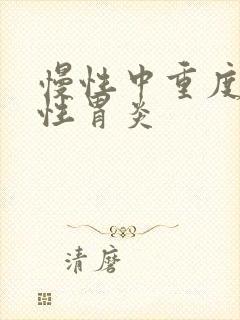 慢性中重度
性胃炎
清磨